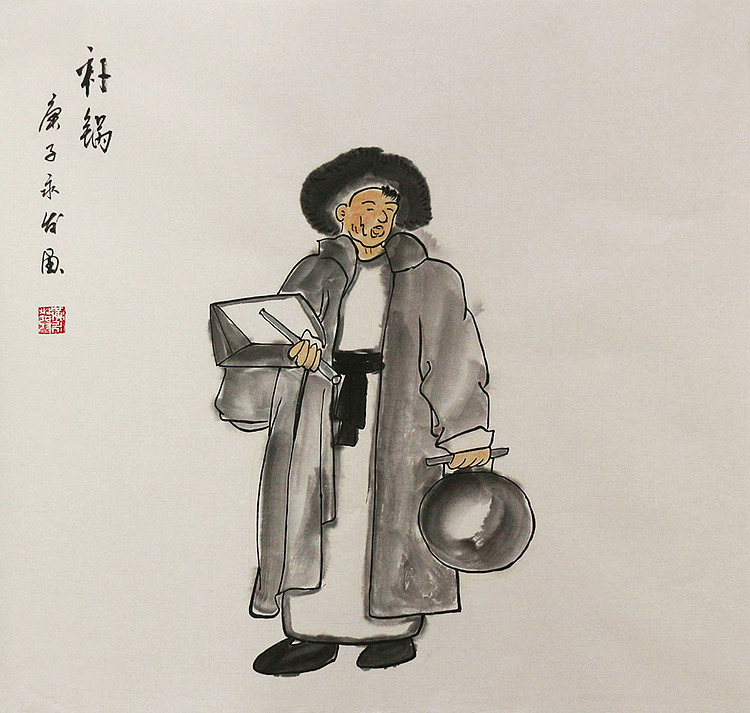 补锅
庚子永发画